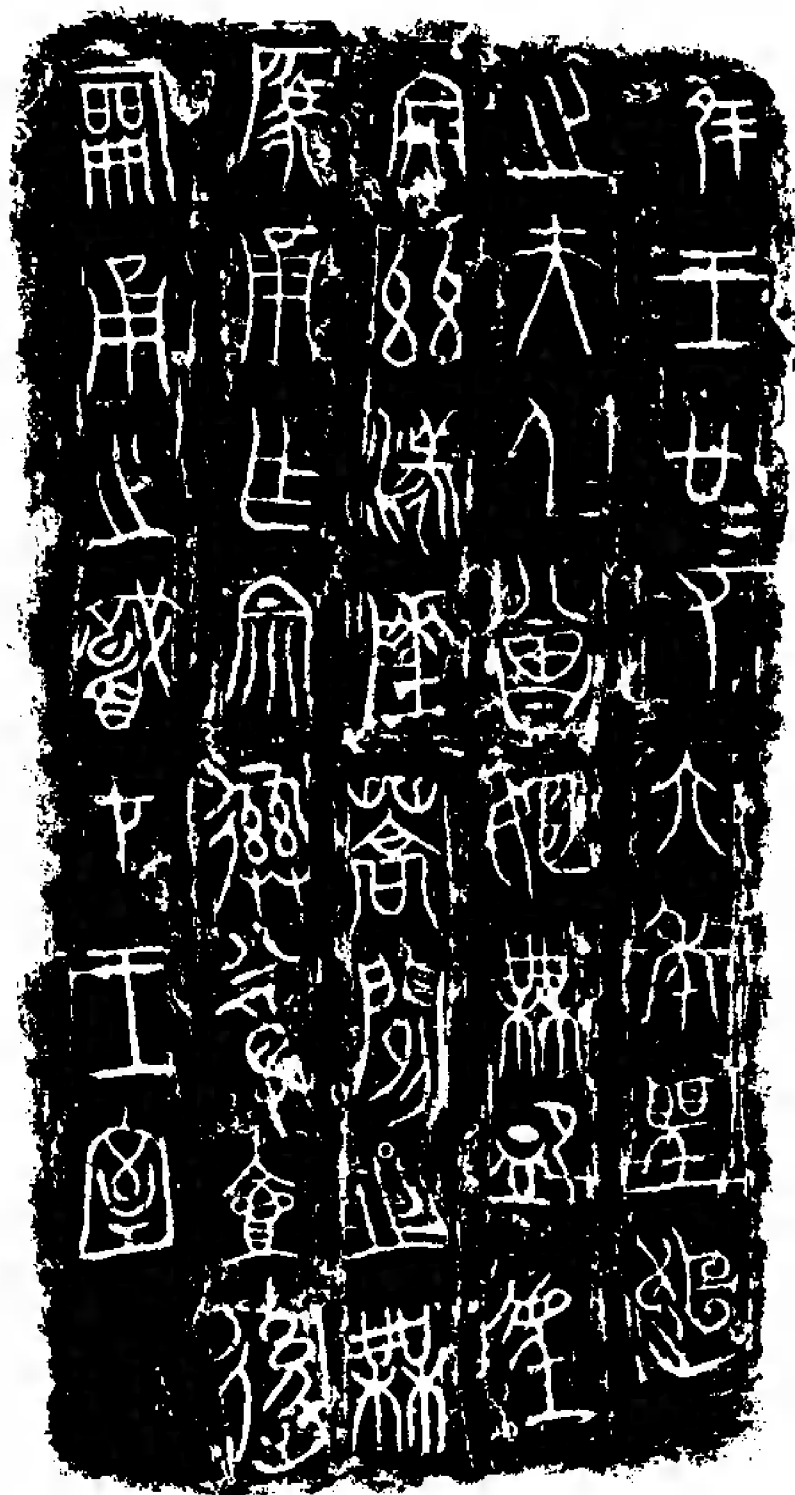 隹王廿又六年聖𧻚
之夫人曾姬無卹望
安茲漾陵蒿閒之無
匹甬乍宗彝尊壺後
嗣甬之職才王室